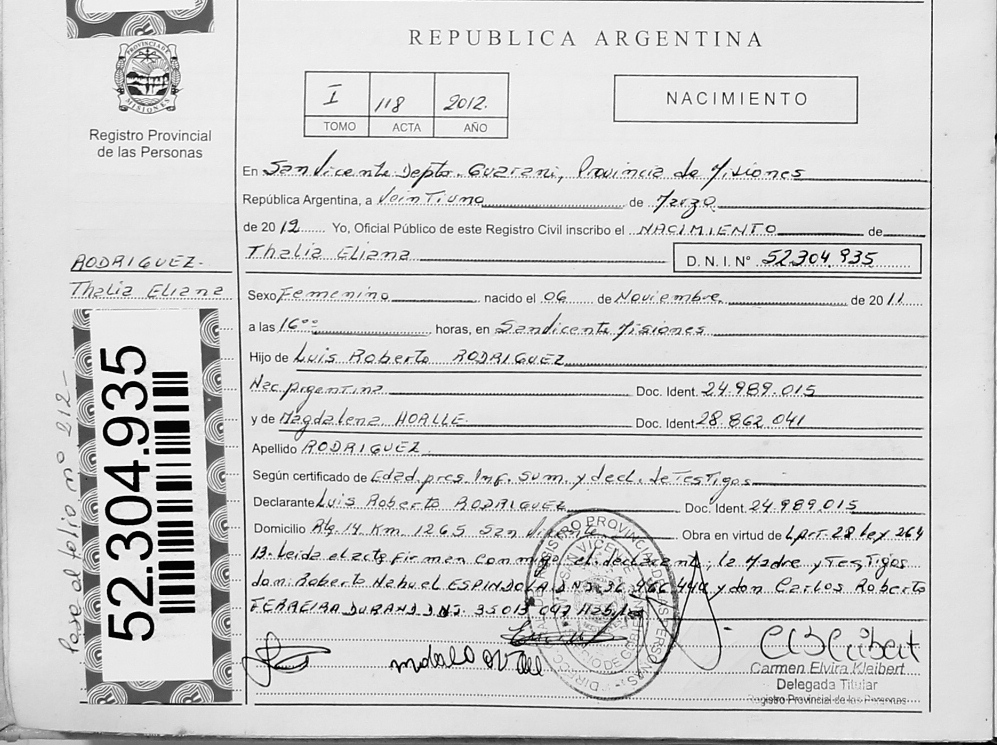 REPUBLICA ARGENTINA
PROVINCIA DE
MISIONES
Registro Provincial
de las Personas
I 118 2012.
TOMO ACTA AÑO
NACIMIENTO
En San Vicente Depto. Guarani, Provincia de Misiones
República Argentina, a Veintiuno de Marzo
de 2012 Yo, Oficial Público de este Registro Civil inscribo el NACIMIENTO de
Thalia Eliana D. N. I. Nº 52.304.935
RODRIGUEZ.
Thalia Eliana
Sexo Femenino nacido el 06 de Noviembre de 2011
a las 16ºº horas, en San Vicente Misiones
Hijo de Luis Roberto RODRIGUEZ
Nac. Argentina Doc. Ident. 24.989.015
y de Magdalena HORLLE Doc. Ident. 28.862.041
Apellido RODRIGUEZ
Según certificado de Edad pres. Inf. Sum. y decl. de Testigos
Declarante Luis Roberto RODRIGUEZ Doc. Ident. 24.989.015
Domicilio Km 1265 San Vicente Obra en virtud de Art. 28 Ley 264
13. Leida el acta firman conmigo el declarante, la Madre y Testigos
don: Roberto Nahuel ESPINDOLA y don Carlos Roberto
FERREIRA DURAN D.N.I. 35.013.047
52.304.935
Pase al folio nº 212
Carmen Elvira Kleibert
Delegada Titular
Registro Provincial de las Personas